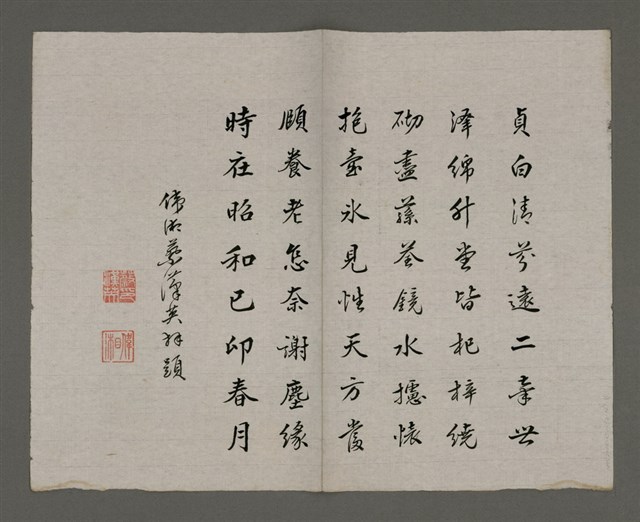 貞白清芬遠二世
澤綿升堂皆杞梓繞
砌盡蓀荃鏡水攄懷
抱壺冰見性天方當
頤養老怎奈謝塵緣
時在昭和己卯春月
偉蔡漢英拜題